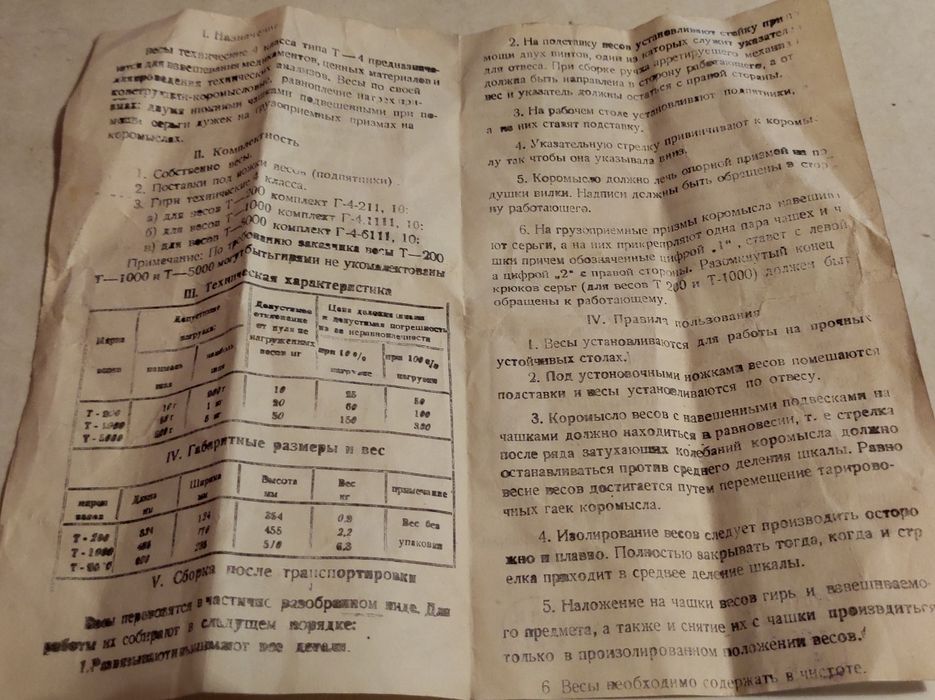 I. Назначение
Весы технические 4 класса типа Т—4 предназнача-
ются для взвешивания медикаментов, ценных материалов и
для проведения технических анализов. Весы по своей
конструкции-коромысловые, равноплечие на трех при-
змах: двумя нижними чашками подвешенными при по-
мощи серьги дужек на грузоприемных призмах на
коромыслах.
II. Комплектность
1. Собственно весы.
2. Поставки под ножки весов (подпятники).
3. Гири технические 4 класса.
а) для весов Т—200 комплект Г-4-211, 10:
б) для весов Т—1000 комплект Г-4-1111, 10:
в) для весов Т—5000 комплект Г-4-6111, 10:
Примечание: По требованию заказчика весы Т—200
Т—1000 и Т—5000 могут быть гирями не укомплектованы
III. Техническая характеристика
Марка весов
Допустимые нагрузки:
Допустимое отклонение от нуля не нагруженных весов мг
Цена деления шкалы и допустимая погрешность из за неравноплечности
при 10% нагрузке
при 100% нагрузки
Т - 200 10 25 50
20 60 100
Т - 5000 50 150
IV. Габаритные размеры и вес
марка весов Длина мм Ширина мм Высота мм Вес кг примечание
Т - 200 134 284 0,9 Вес без
455 2,2 упаковки
V. Сборка после транспортировки
Весы перевозятся в частично разобранном виде. Для
работы их собирают в следущем порядке:
1. Развязывают и вынимают все детали.
2. На подставку весов устанавливают стойку при п
мощи двух пинтов, один из которых служит указател
для отвеса. При сборке ручка арретирущего механиз
должна быть направлена в сторону работающего, а от
вес и указатель должны остаться с правой стороны.
3. На рабочем столе устанавливают подпятники,
а на них ставят подставку.
4. Указательную стрелку привинчивают к коромы-
лу так чтобы она указывала вниз.
5. Коромысло должно лечь опорной призмой на по
душки вилки. Надписи должны быть обращены в стор
ну работающего.
6. На грузоприемные призмы коромысла навешив
ют серьги, а на них прикрепляют одна пара чашех и ч
шки причем обозначенные цифрой „1" , ставет с левой
а цифрой „2" с правой стороны. Разомкнутый конец
крюков серьг (для весов Т 200 и Т-1000) должен быт
обращены к работающему.
IV. Правила пользования
1. Весы установливаются для работы на прочных
устойчивых столах.
2. Под устоновочными ножками весов помещаются
подставки и весы установливаются по отвесу.
3. Коромысло весов с навешенными подвесками на
чашками должно находиться в равновесии, т. е стрелка
после ряда затухающих колебаний коромысла должно
останавливаться против среднего деления шкалы. Равно
весие весов достигается путем перемещение тарирово-
чных гаек коромысла.
4. Изолирование весов следует производить осторо
жно и плавно. Полностью закрывать тогда, когда и стр
елка приходит в среднее деление шкалы.
5. Наложение на чашки весов гирь и взвешиваемо-
го предмета, а также и снятие их с чашки произвдиться
только в произолированном положении весов.
6 Весы необходимо содержать в чистоте.